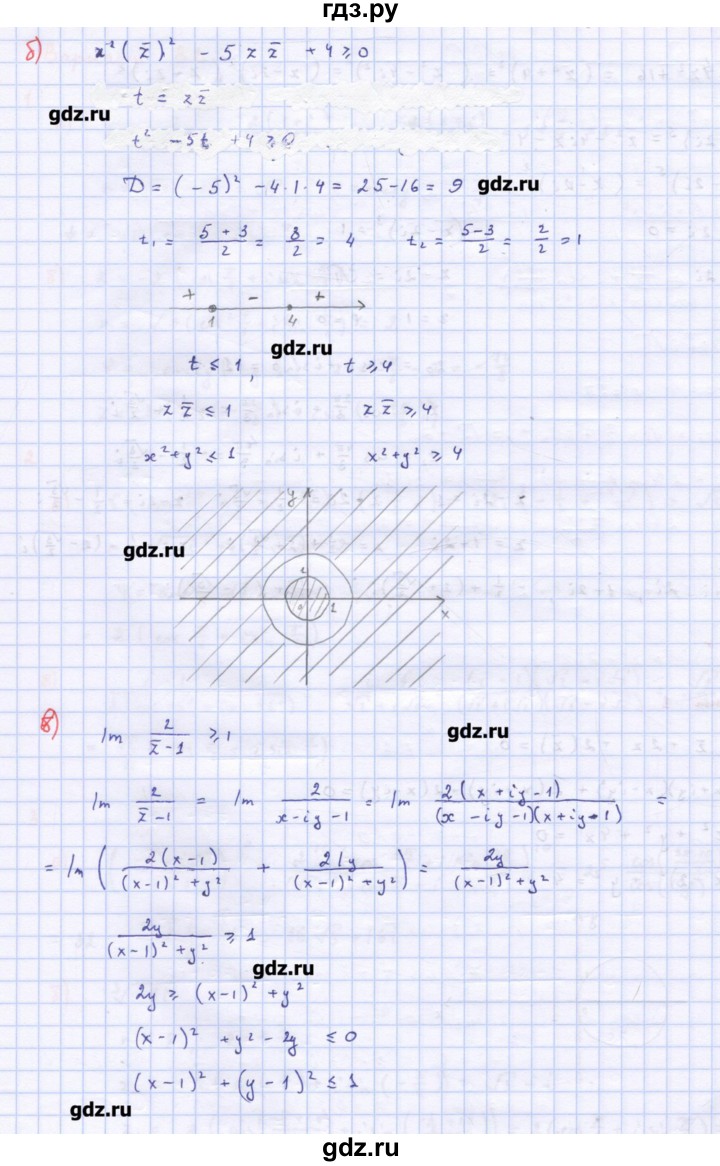 гдз.ру
б) z² (z̄)² - 5 z z̄ + 4 ≥ 0
t = z z̄
gdz.ru
t² - 5t + 4 ≥ 0
D = (-5)² - 4·1·4 = 25-16 = 9 gdz.ru
t₁ = (5+3)/2 = 8/2 = 4 t₂ = (5-3)/2 = 2/2 = 1
+ - +
1 4
gdz.ru
t ≤ 1, t ≥ 4
z z̄ ≤ 1 z z̄ ≥ 4
x² + y² ≤ 1 x² + y² ≥ 4
y
gdz.ru
x
в) Im 2/(z̄-1) ≥ 1
gdz.ru
Im 2/(z̄-1) = Im 2/(x-iy-1) = Im 2(x+iy-1)/((x-iy-1)(x+iy-1)) =
= Im ( 2(x-1)/((x-1)²+y²) + 2iy/((x-1)²+y²) ) = 2y/((x-1)²+y²)
2y/((x-1)²+y²) ≥ 1
gdz.ru
2y ≥ (x-1)² + y²
(x-1)² + y² - 2y ≤ 0
(x-1)² + (y-1)² ≤ 1
gdz.ru
gdz.ru